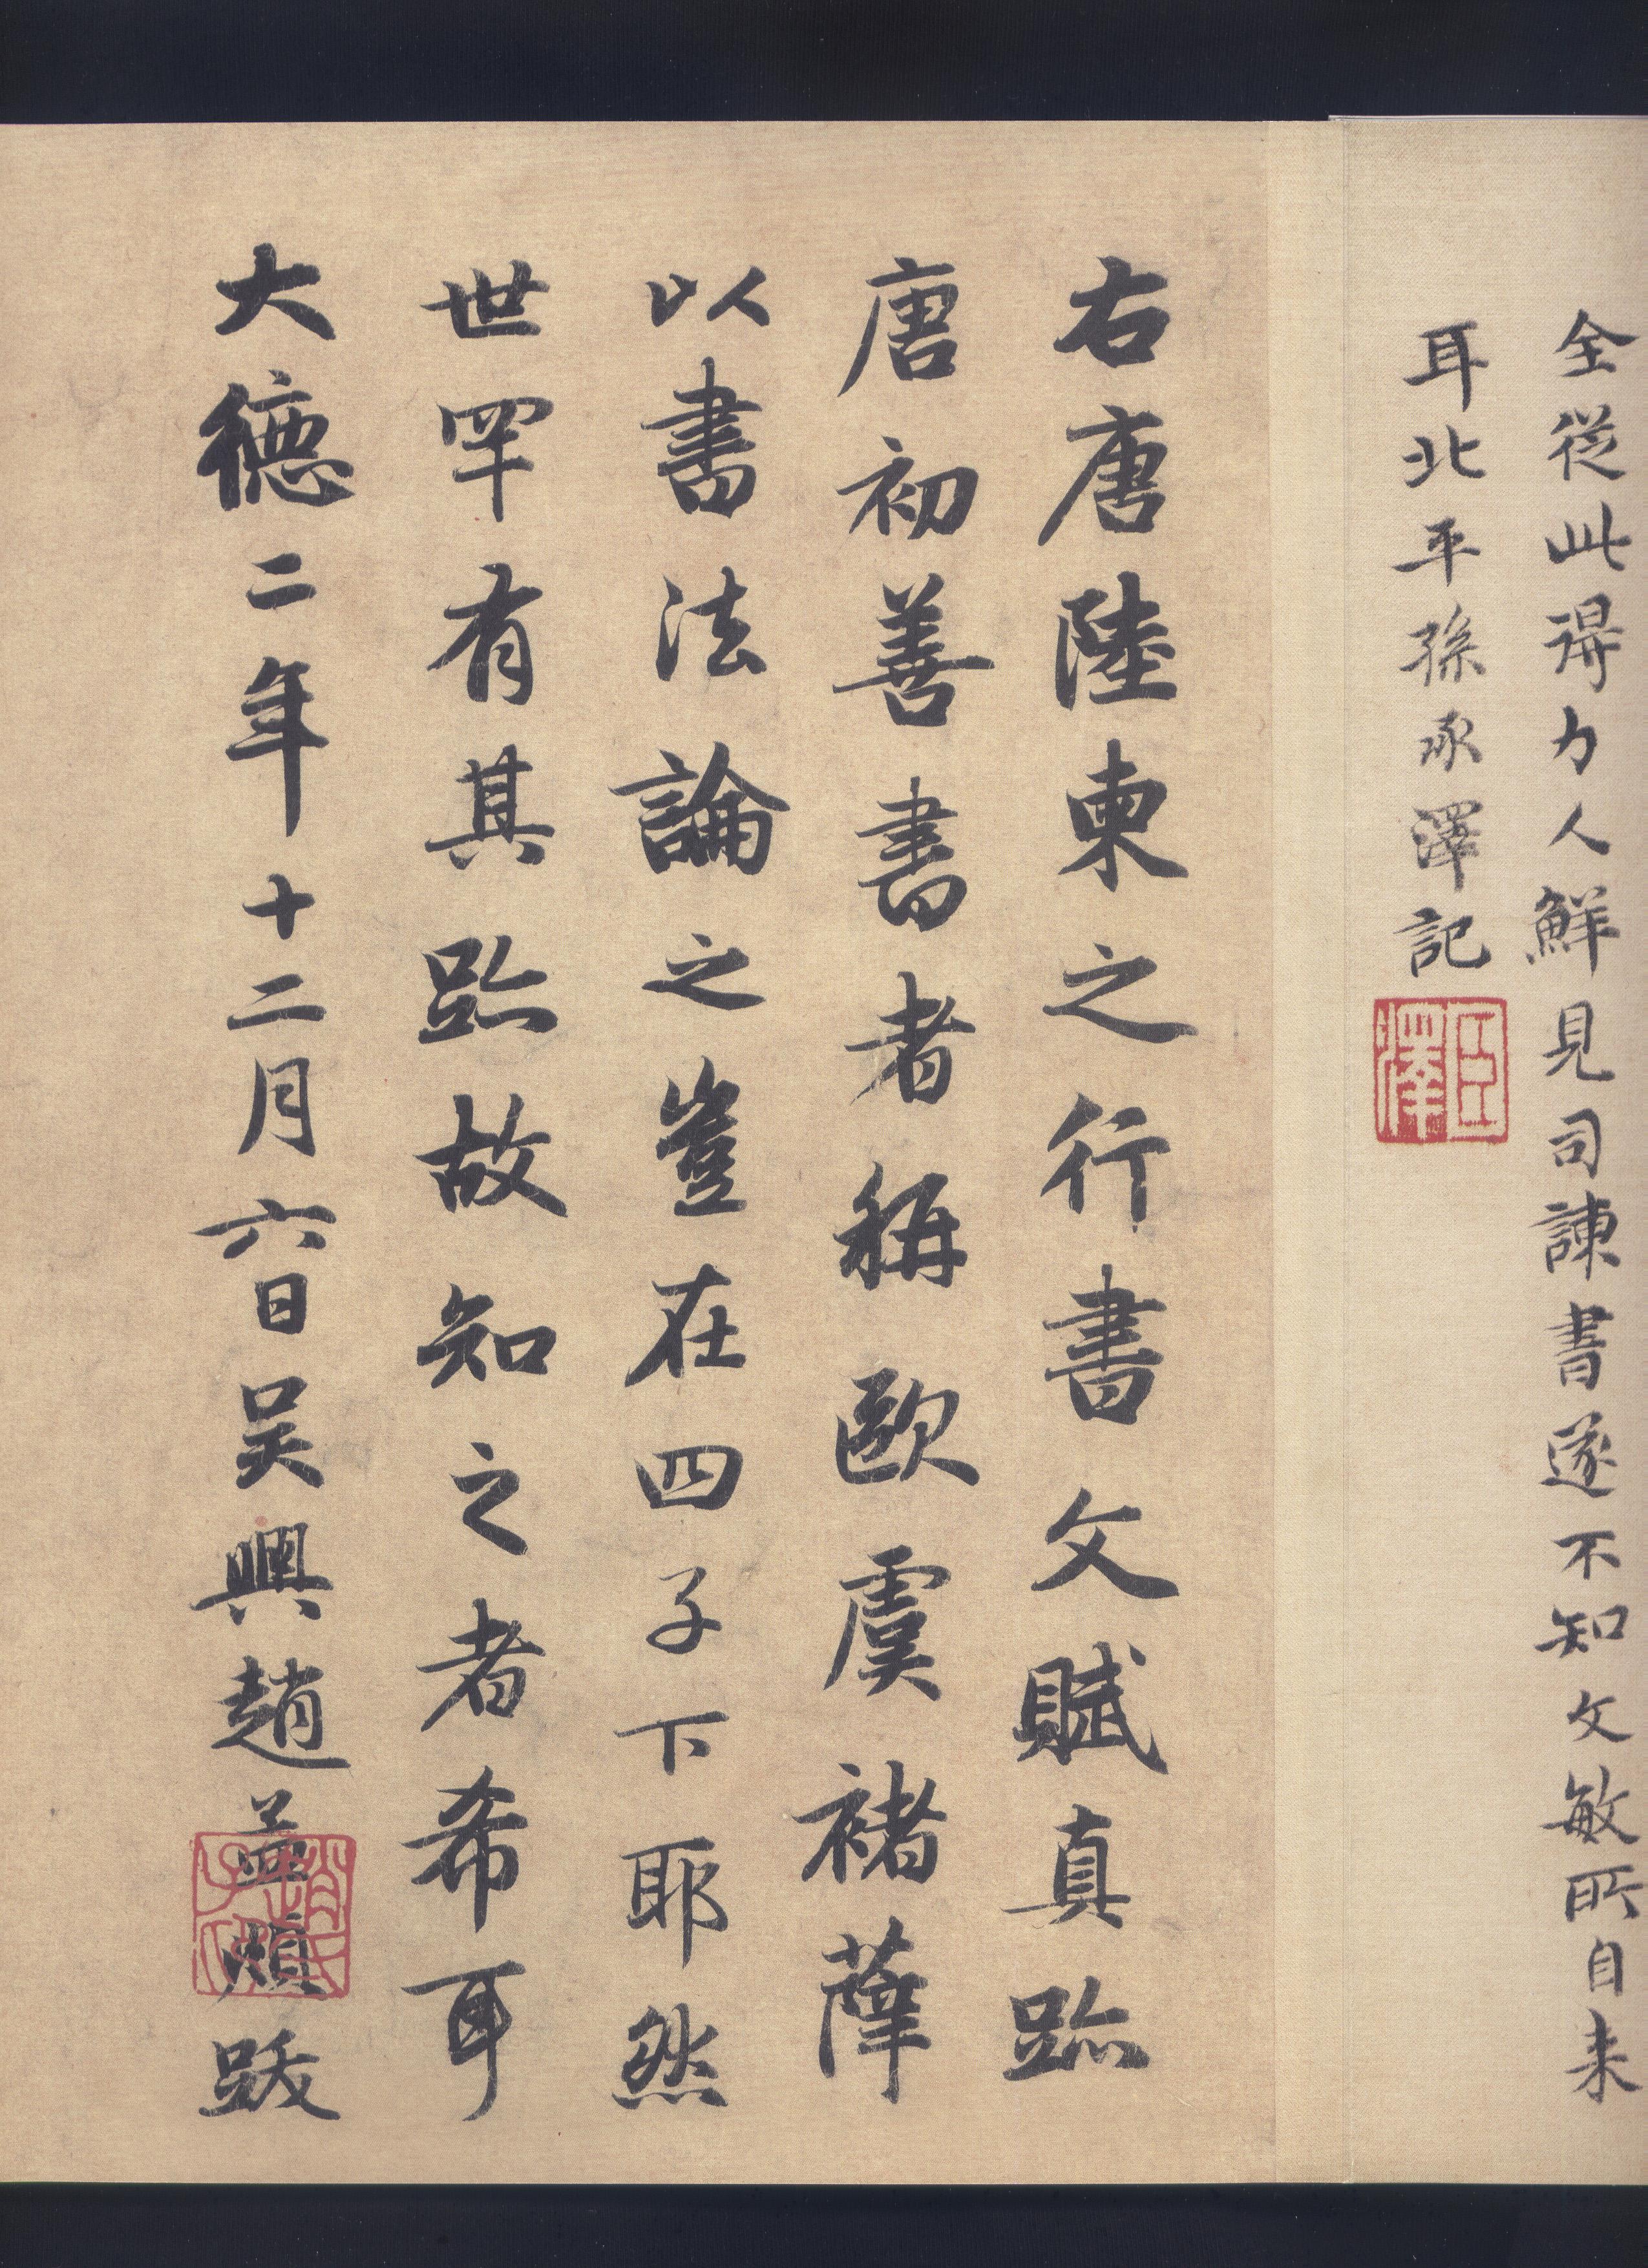 全從此得力人鮮見司諫書遂不知文敏所自来
耳北平孫承澤記
臣澤
右唐陸柬之行書文賦真跡
唐初善書者稱歐虞褚薛
以書法論之豈在四子下耶然
世罕有其跡故知之者希耳
大德二年十二月六日吳興趙孟頫跋
趙氏子昂